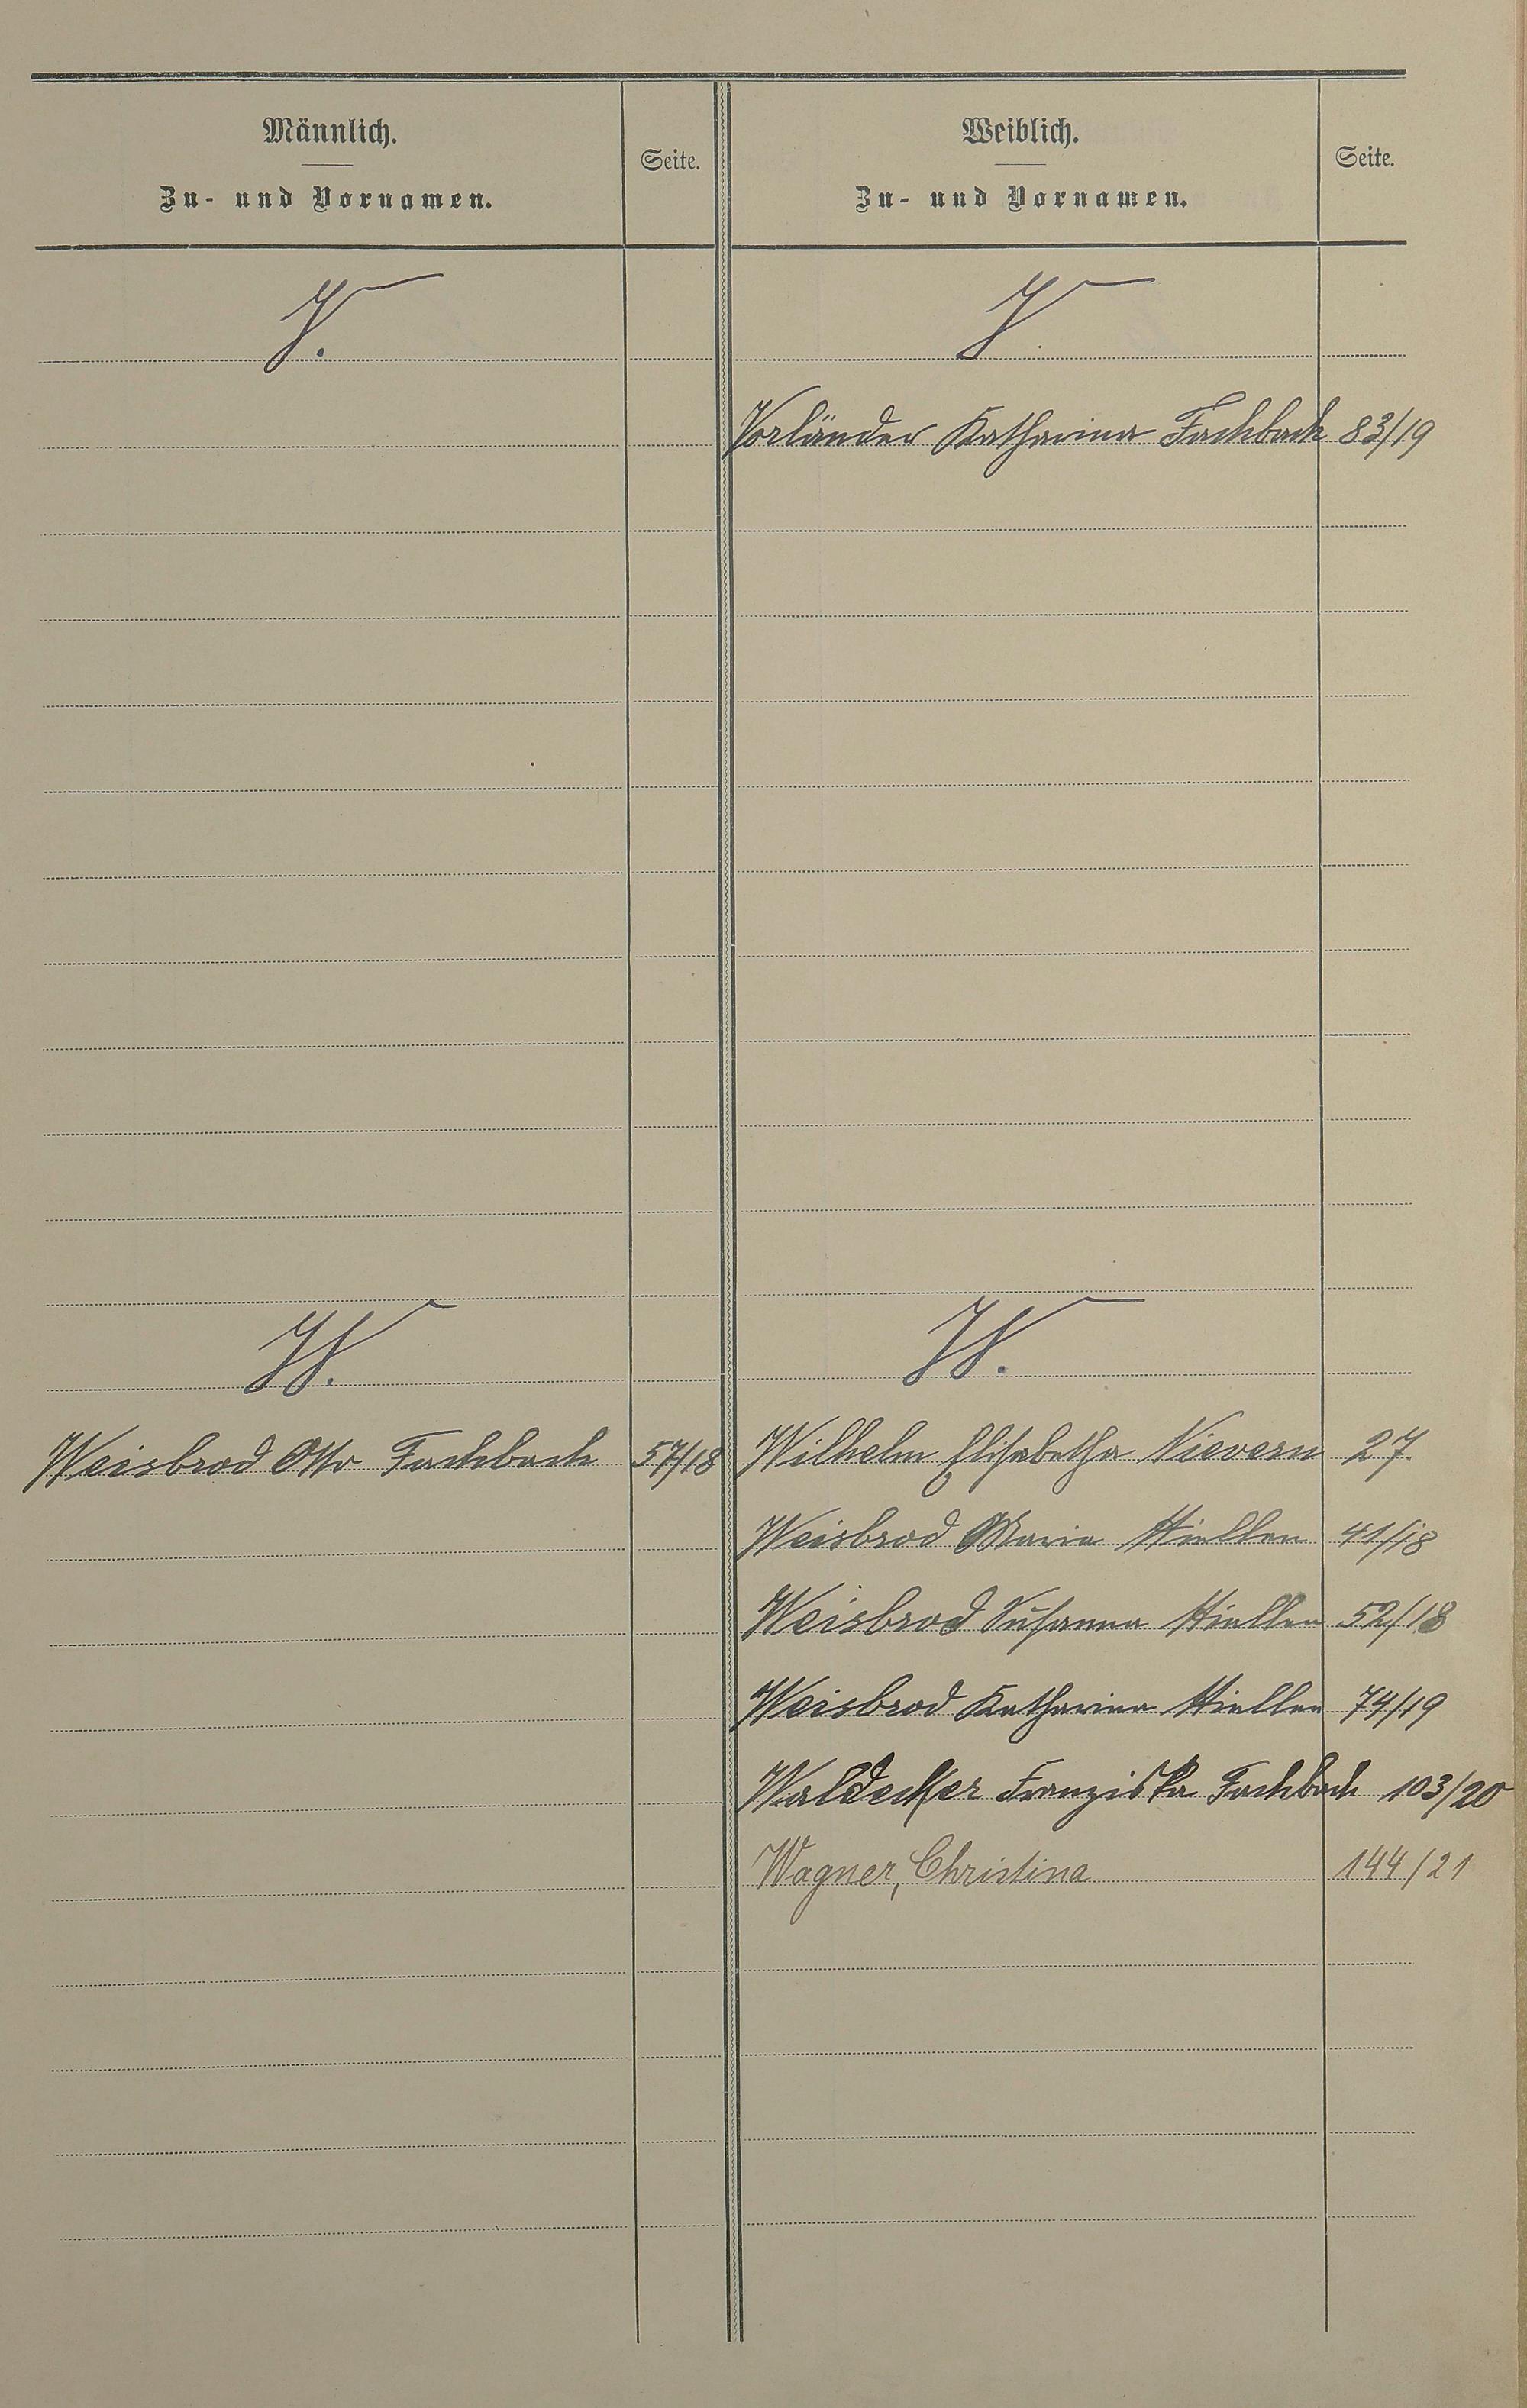 Männlich.
Zu- und Vornamen.
Seite.
Weiblich.
Zu- und Vornamen.
Seite.
V.
V.
Vorländer Katharina Fachbach 83/19
W.
W.
Weisbrod Otto Fachbach 57/18
Wilhelm Elisabetha Nievern 27.
Weisbrod Maria Miellen 41/18
Weisbrod Susanna Miellen 52/18
Weisbrod Katharina Miellen 74/19
Waldecker Franziska Fachbach 103/20
Wagner, Christina 144/21